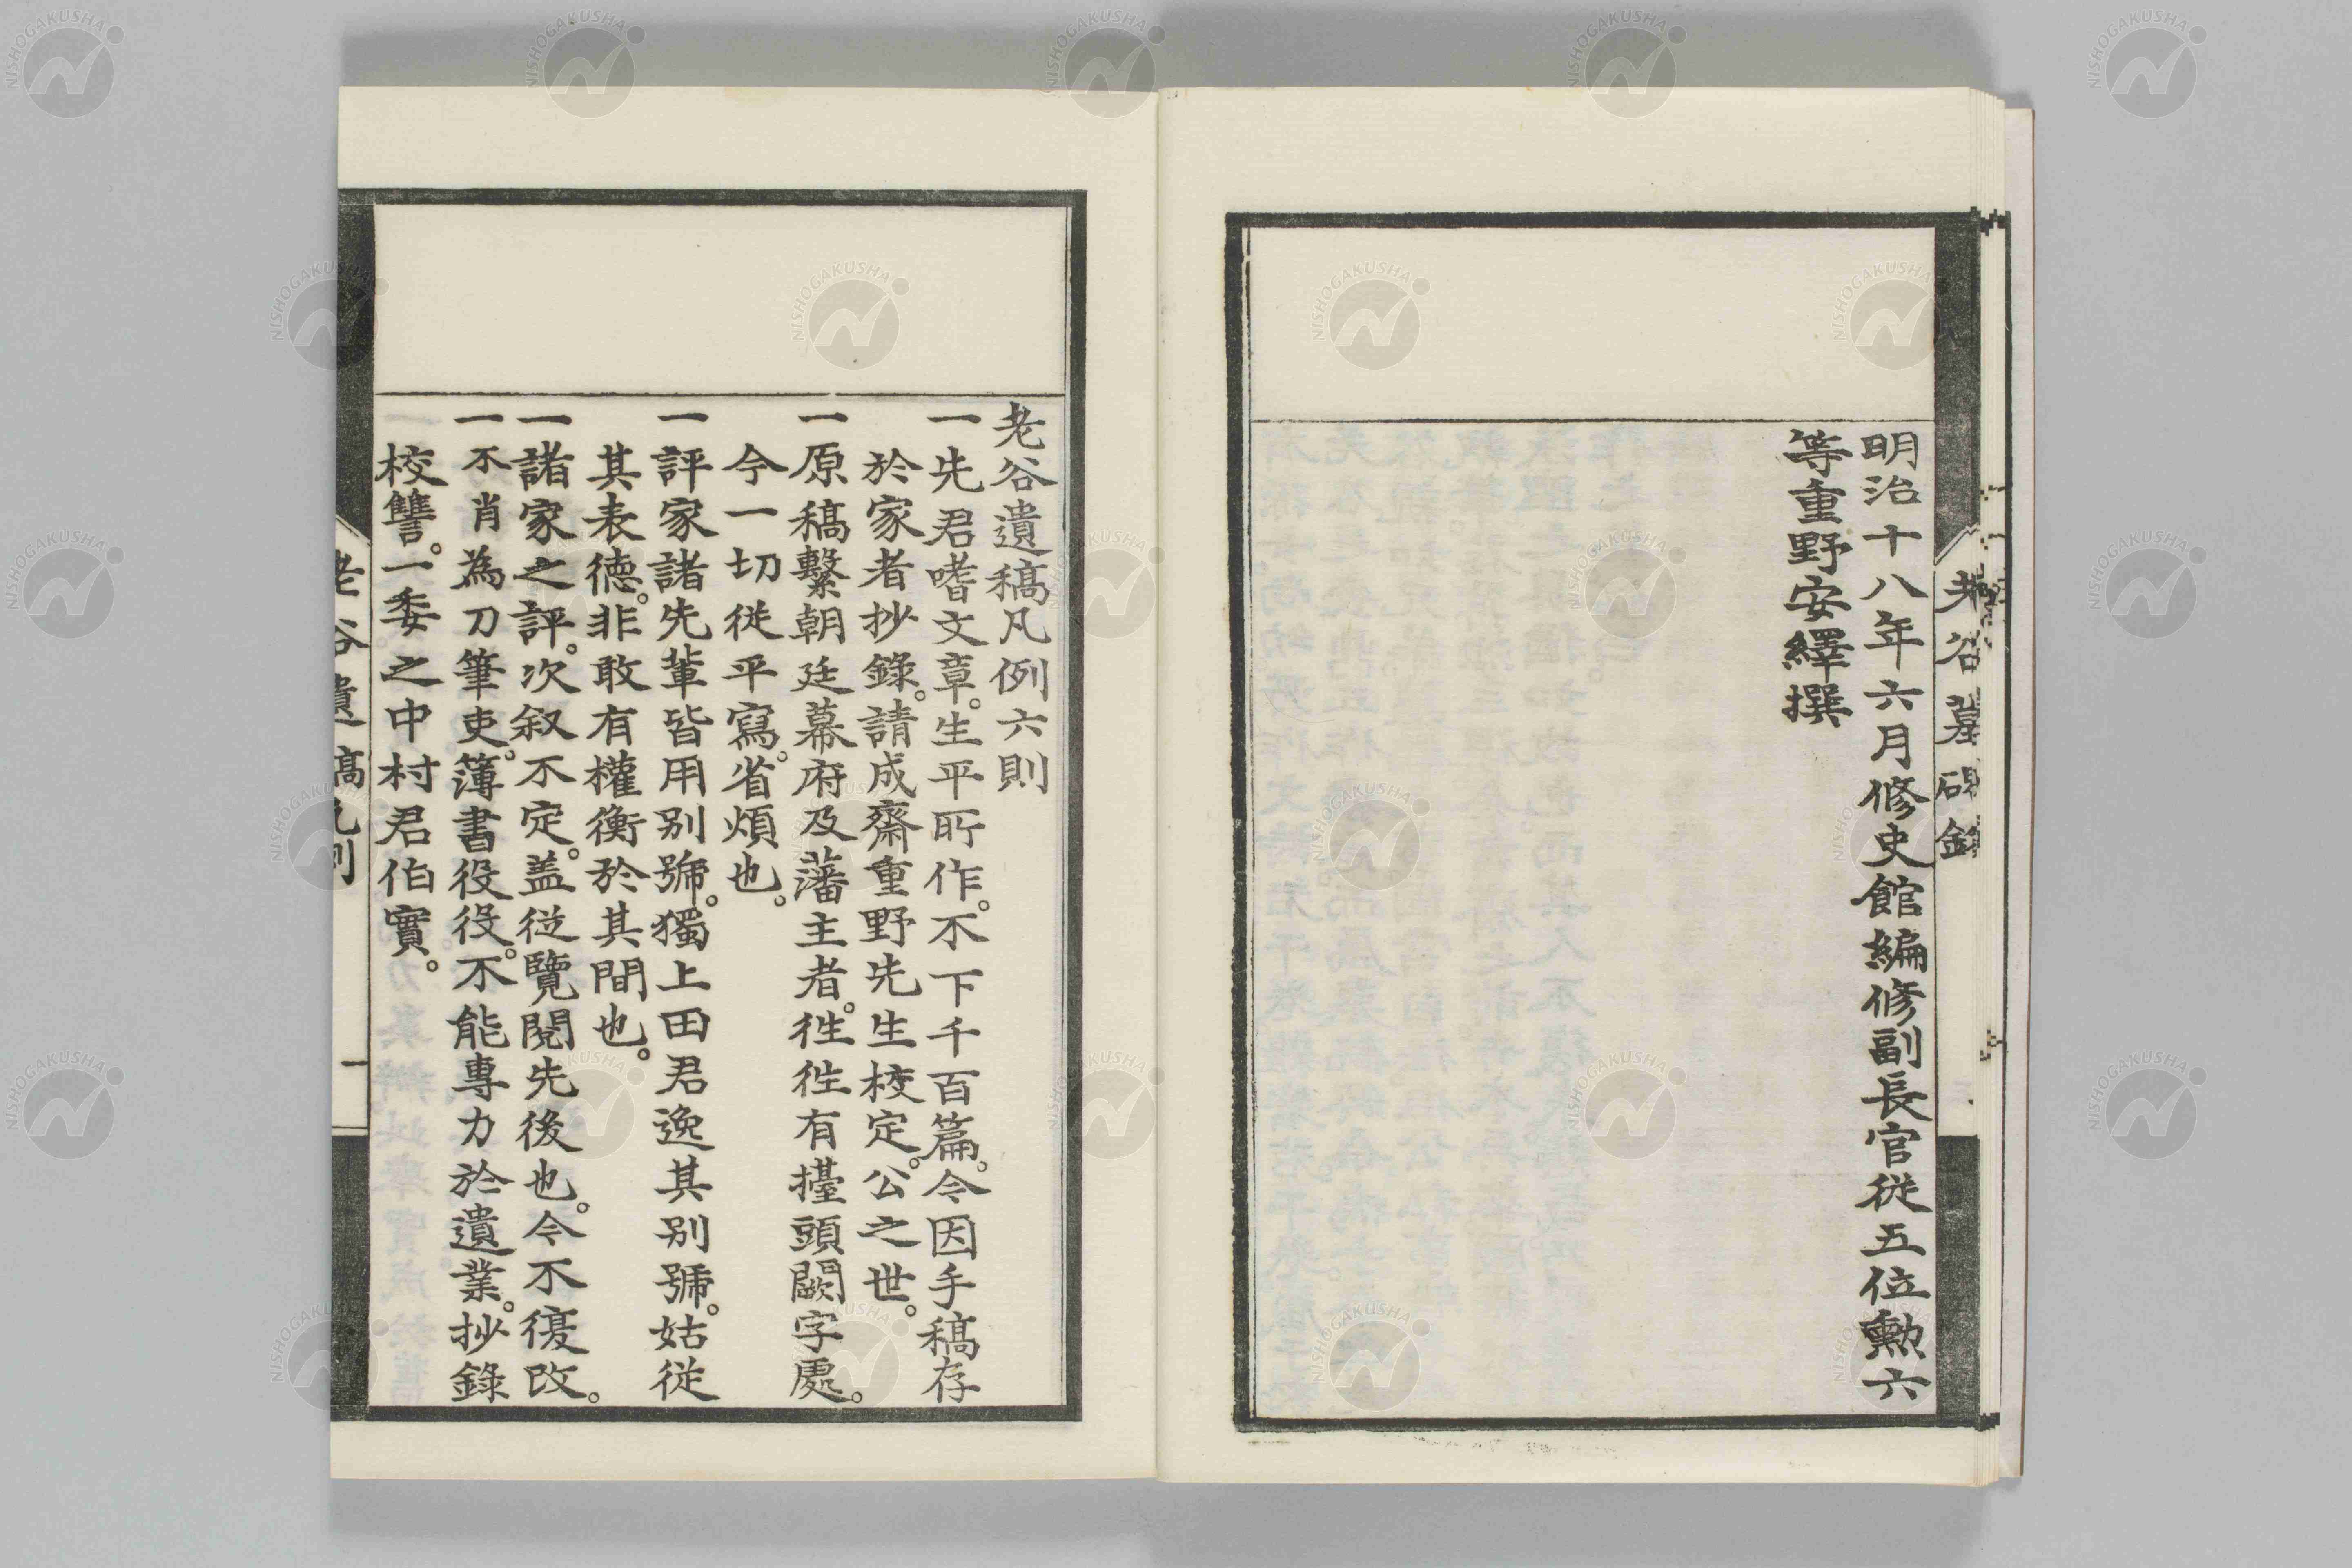 明治十八年六月修史館編修副長官従五位勲六
等重野安繹撰
老谷遺稿凡例六則
一先君嗜文章。生平所作。不下千百篇。今因手稿存
於家者抄錄。請成齋重野先生校定。公之世。
一原稿繫朝廷幕府及藩主者。徃徃有擡頭闕字處。
今一切從平寫。省煩也。
一評家諸先輩皆用別號。獨上田君逸其別號。姑従
其表德。非敢有權衡於其間也。
一諸家之評。次叙不定。盖従覽閱先後也。今不復改。
一不肖為刀筆吏。簿書役役。不能專力於遺業。抄錄
校讐。一委之中村君伯實。
老谷遺稿凡例
一
NISHOGAKUSHA